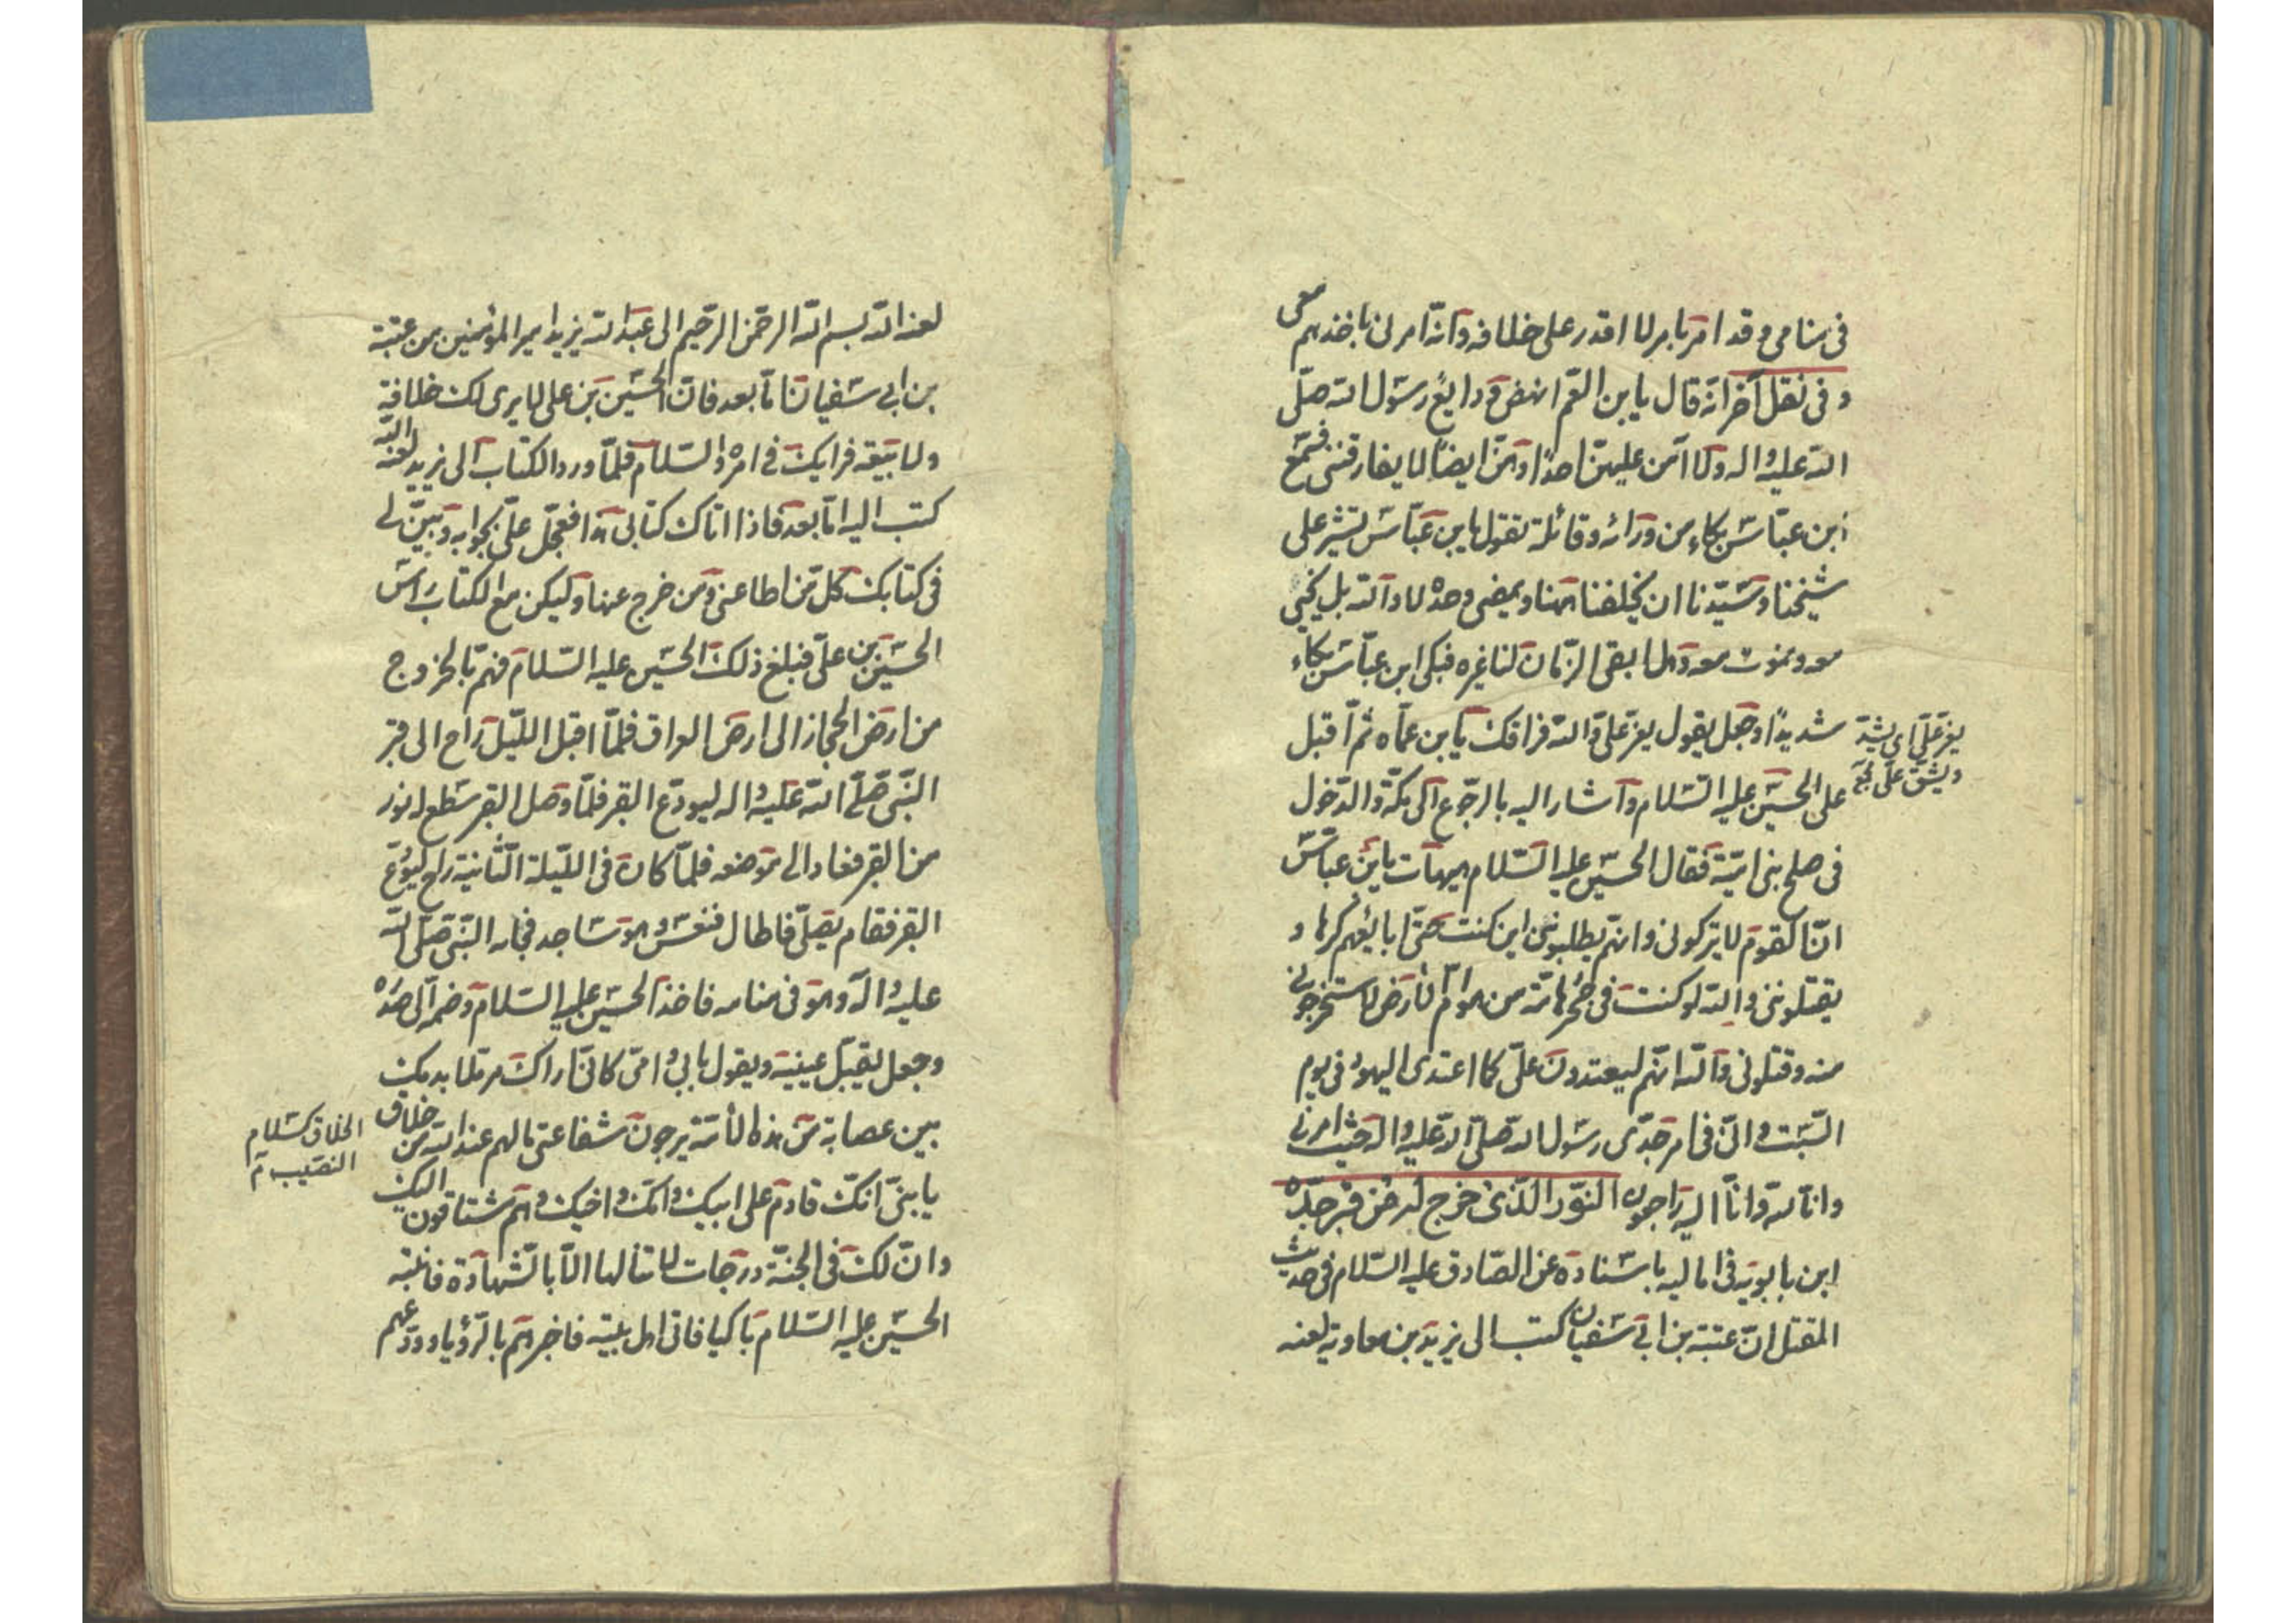 في منامي وقد امر بامر لا اقدر على خلافه وانه امرني باخذهم معي
وفي نقل آخر انه قال يابن العم انهن ودايع رسول الله صلى
الله عليه واله ولا آمن عليهن احدا وهن ايضا لا يفارقنني فسمع
ابن عباس بكاء من ورائه وقائلة تقول يابن عباس تشير على
شيخنا وسيدنا ان يخلفنا ههنا ويمضي وحده لا والله بل نحيى
معه ونموت معه وهل ابقى الزمان لنا غيره فبكى ابن عباس بكاء
شديدا وجعل يقول يعز علي والله فراقك يابن عماه ثم اقبل
على الحسين عليه السلام واشار اليه بالرجوع الى مكة والدخول
في صلح بني امية فقال الحسين عليه السلام هيهات يابن عباس
ان القوم لا يتركوني وانهم يطلبونني اين كنت حتى ابايعهم كرها و
يقتلونني والله لو كنت في جحر هامة من هوام الارض لاستخرجوني
منه وقتلوني والله انهم ليعتدون علي كما اعتدى اليهود في يوم
السبت واني في امر جدي رسول الله صلى الله عليه واله حيث امرني
وانا لله وانا اليه راجعون النور الذي خرج له من قبر جده
ابن بابويه في اماليه باسناده عن الصادق عليه السلام في حديث
المقتل ان عتبة بن ابي سفيان كتب الى يزيد بن معاوية لعنه
يعز علي اي يشتد
ويشق علي
لعنه الله بسم الله الرحمن الرحيم الى عبد الله يزيد امير المؤمنين من عتبة
بن ابي سفيان اما بعد فان الحسين بن علي لا يرى لك خلافة
ولا بيعة فرايك في امره والسلام فلما ورد الكتاب الى يزيد لعنه الله
كتب اليه اما بعد فاذا اتاك كتابي هذا فعجل علي بجوابه وبين لي
في كتابك كل من اطاعني ومن خرج عنها وليكن مع الكتاب راس
الحسين بن علي فبلغ ذلك الحسين عليه السلام فهم بالخروج
من ارض الحجاز الى ارض العراق فلما اقبل الليل راح الى قبر
النبي صلى الله عليه واله ليودع القبر فلما وصل القبر سطع له نور
من القبر فعاد الى موضعه فلما كان في الليلة الثانية راح ليودع
القبر فقام يصلي فاطال فنعس وهو ساجد فجاءه النبي صلى الله
عليه واله وهو في منامه فاخذ الحسين عليه السلام وضمه الى صدره
وجعل يقبل عينيه ويقول بابي وامي كاني اراك مرملا بدمك
بين عصابة من هذه الامة يرجون شفاعتي مالهم عند الله من خلاق
يا بني انك قادم على ابيك وامك واخيك وهم مشتاقون اليك
وان لك في الجنة درجات لا تنالها الا بالشهادة فانتبه
الحسين عليه السلام باكيا فاتى اهل بيته فاخبرهم بالرؤيا وودعهم
الخلاق كسلام
النصيب